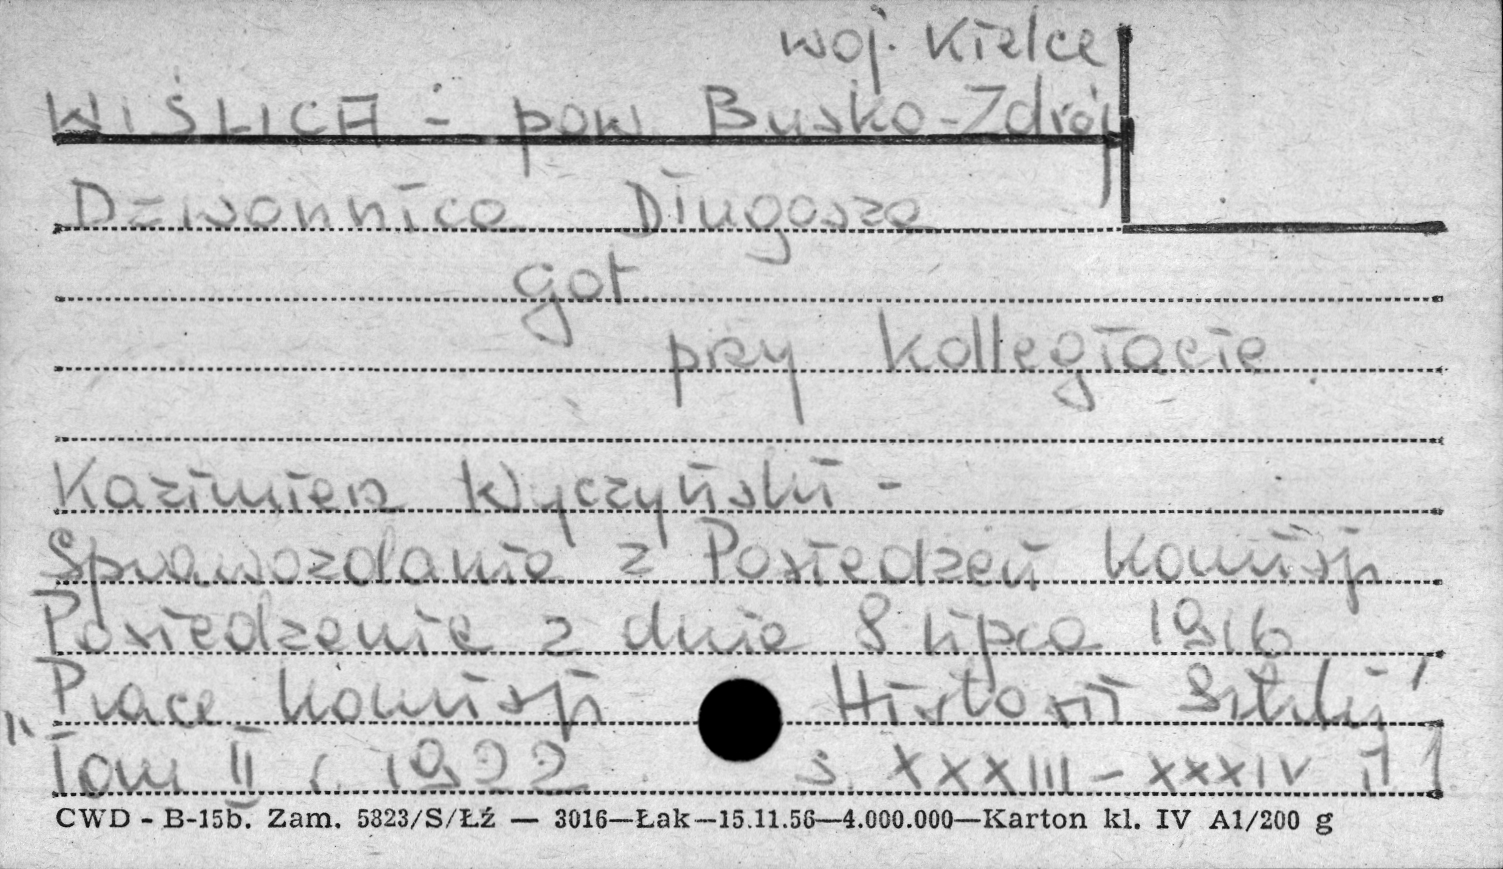 woj. Kielce
WIŚLICA - pow Busko-Zdrój
Dzwonnica Długosza
got.
przy kollegiacie
Kazimierz Wyczyński -
Sprawozdanie z Posiedzeń Komisji
Posiedzenie z dnia 8 lipca 1916
"Prace Komisji Historii Sztuki"
Tom II r. 1922. s. XXXIII - XXXIV il 1
CWD - B-15b. Zam. 5823/S/ŁŹ — 3016—Łak—15.11.56—4.000.000—Karton kl. IV A1/200 g